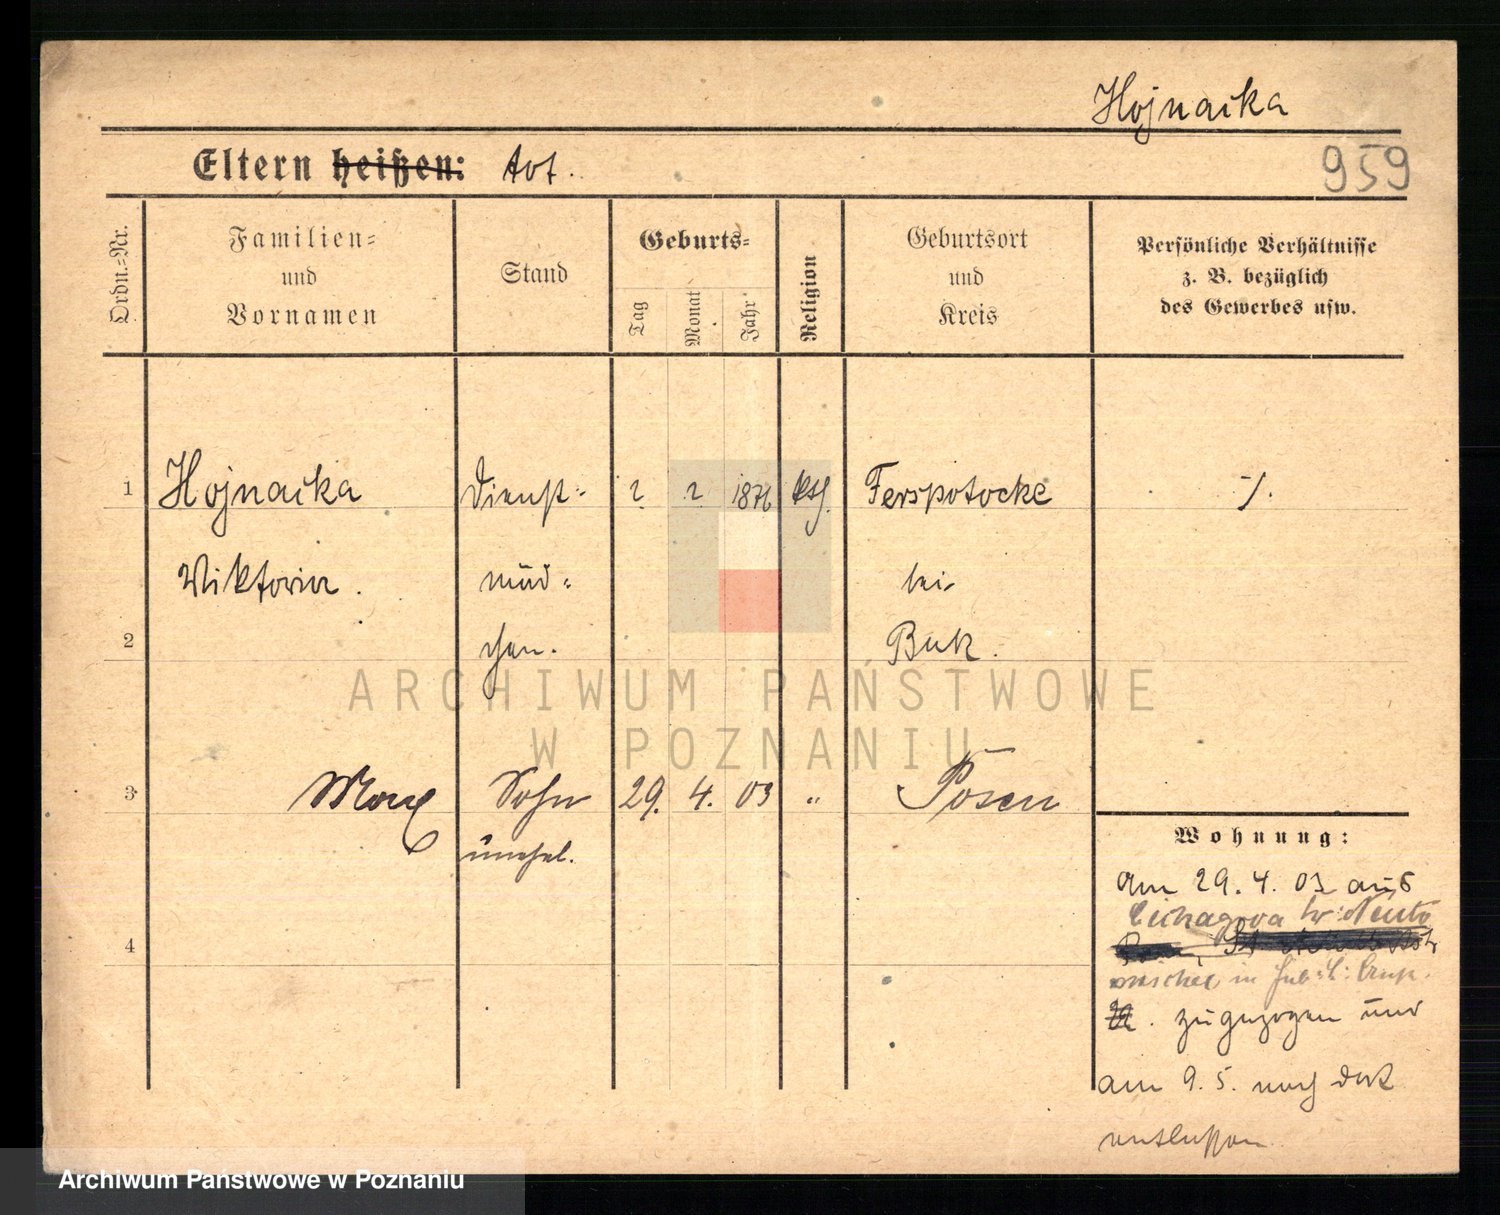 Hojnacka
Eltern heißen: tot.
959
Ordn.-Nr.
Familien-
und
Vornamen
Stand
Geburts-
Tag
Monat
Jahr
Religion
Geburtsort
und
Kreis
Persönliche Verhältnisse
z. B. bezüglich
des Gewerbes usw.
1 Hojnacka Dienst- ? ? 1876 kth. Ferspotocke ./.
Viktoria. mäd- bei
2 chen. Buk.
ARCHIWUM PAŃSTWOWE
W POZNANIU
3 Max Sohn 29. 4. 03 " Posen
unehel.
4
Wohnung:
am 29. 4. 03 aus
in
zugezogen und
am 9. 5. nach dort
entlassen
Archiwum Państwowe w Poznaniu